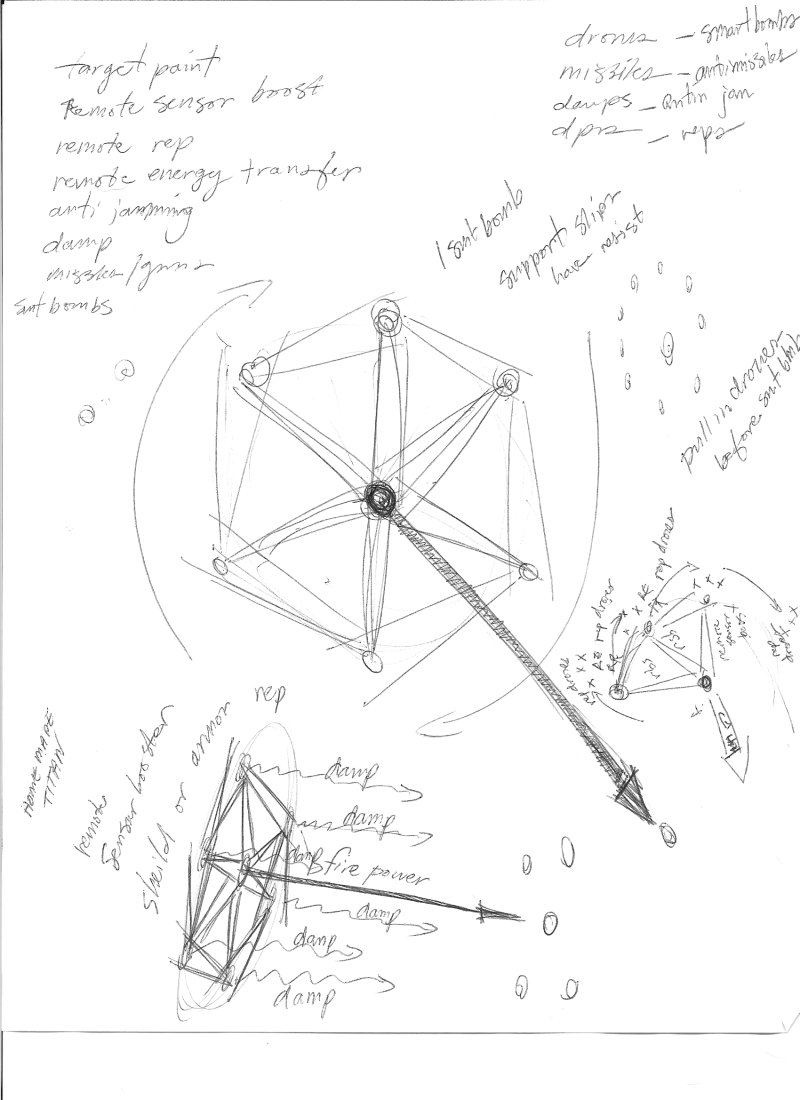 target paint
Remote sensor boost
remote rep
remote energy transfer
anti jamming
damp
missles/guns
smt bombs
drones - smartbombs
missiles - antimissiles
damps - antin jam
dps - reps
1 smt bomb
support ships
have resist
pull in drones
before smt bomb
rep drones
rep drones
rep drones
remote
sensor
HOME MADE
TITAN
remote
sensor booster
sheild or armor
rep
damp
damp
damp
fire power
damp
damp
damp